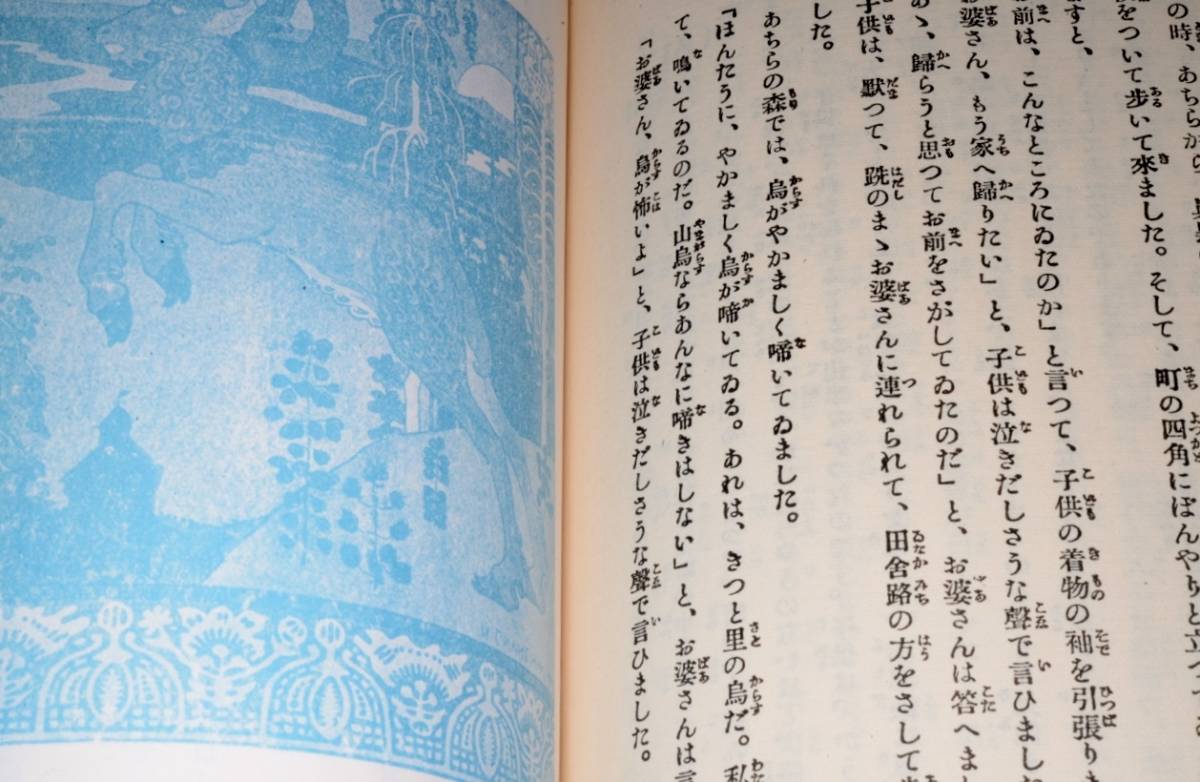 の時、あちらか
をついて歩いて來ました。そして、町の四角にぼんやりと立つ
すと、
前は、こんなところにゐたのか」と言つて、子供の着物の袖を引張りま
お婆さん、もう家へ歸りたい」と、子供は泣きだしさうな聲で言ひまし
あゝ、歸らうと思つてお前をさがしてゐたのだ」と、お婆さんは答へまし
子供は、默つて、跣のまゝお婆さんに連れられて、田舍路の方をさして
した。
あちらの森では、烏がやかましく啼いてゐました。
「ほんたうに、やかましく烏が啼いてゐる。あれは、きつと里の烏だ。私
て、鳴いてゐるのだ。山烏ならあんなに啼きはしない」と、お婆さんは言
「お婆さん、烏が怖いよ」と、子供は泣きだしさうな聲で言ひました。